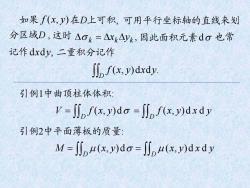 如果 f(x,y) 在D上可积, 可用平行坐标轴的直线来划
分区域D , 这时 Δσₖ = ΔxₖΔyₖ, 因此面积元素dσ 也常
记作dxdy, 二重积分记作
∬_D f(x,y)dxdy.
引例1中曲顶柱体体积:
V = ∬_D f(x,y)dσ = ∬_D f(x,y)d x d y
引例2中平面薄板的质量:
M = ∬_D μ(x,y)dσ = ∬_D μ(x,y)d x d y